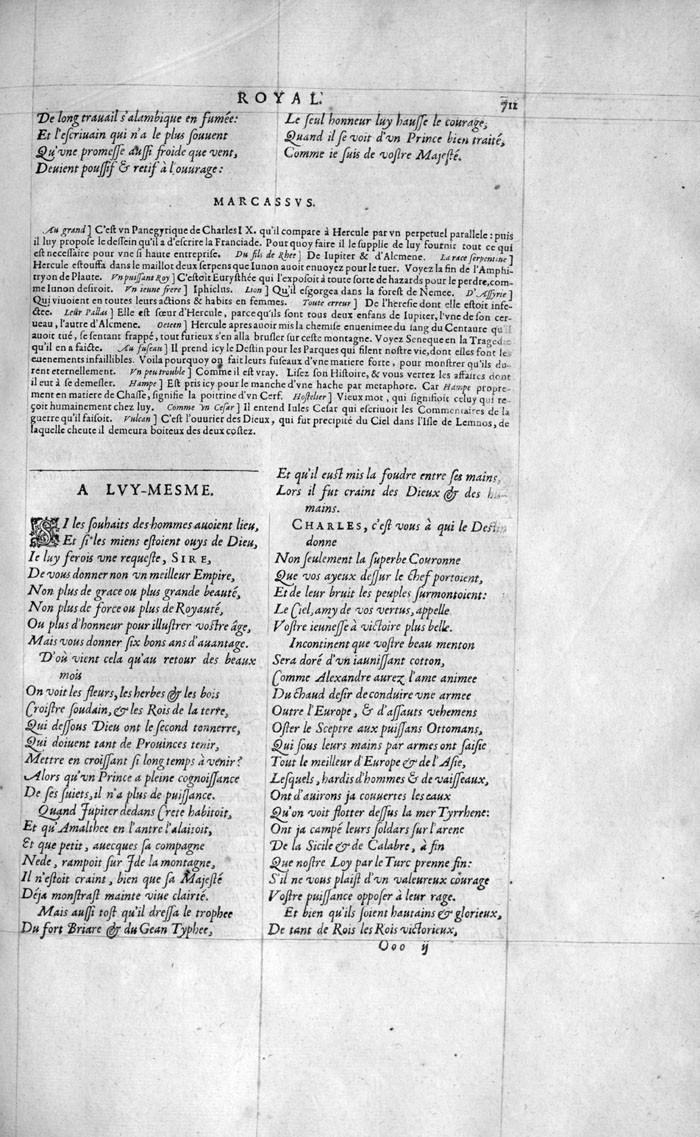 ROYAL. 711
De long trauail s'alambique en fumée:
Et l'escriuain qui n'a le plus souuent
Qu'vne promesse aussi froide que vent,
Deuient poussif & retif à l'ouurage:
Le seul honneur luy hausse le courage,
Quand il se voit d'vn Prince bien traité,
Comme ie suis de vostre Majesté.
MARCASSVS.
Au grand] C'est vn Panegyrique de Charles IX. qu'il compare à Hercule par vn perpetuel parallele: puis
il luy propose le dessein qu'il a d'escrire la Franciade. Pourquoy faire il le supplie de luy fournir tout ce qui
est necessaire pour vne si haute entreprise. Du fils de Rhee] De Iupiter & d'Alcmene. La race serpentine]
Hercule estouffa dans le maillot deux serpens que Iunon auoit enuoyez pour le tuer. Voyez la fin de l'Amphi-
tryon de Plaute. Vn puissant Roy] C'estoit Eurysthée qui l'exposoit à toute sorte de hazards pour le perdre, com-
me Iunon desiroit. Vn ieune frere] Iphiclus. Lion] Qu'il esgorgea dans la forest de Nemee. D'Assyrie]
Qui viuoient en toutes leurs actions & habits en femmes. Toute erreur] De l'heresie dont elle estoit infe-
ctee. Leur Pallas] Elle est sœur d'Hercule, parce qu'ils sont tous deux enfans de Iupiter, l'vne de son cer-
ueau, l'autre d'Alcmene. Oeteen] Hercule apres auoir mis la chemise enuenimee du sang du Centaure qu'il
auoit tué, se sentant frappé, tout furieux s'en alla brusler sur ceste montagne. Voyez Seneque en la Tragedie
qu'il en a faicte. Au fuseau] Il prend icy le Destin pour les Parques qui filent nostre vie, dont elles font les
euenemens infaillibles. Voila pourquoy on fait leurs fuseaux d'vne matiere forte, pour monstrer qu'ils du-
rent eternellement. Vn peu trouble] Comme il est vray. Lisez son Histoire, & vous verrez les affaires dont
il eut à se demesler. Hampe] Est pris icy pour le manche d'vne hache par metaphore. Car Hampe propre-
ment en matiere de Chasse, signifie la poitrine d'vn Cerf. Hostelier] Vieux mot, qui signifioit celuy qui re-
çoit humainement chez luy. Comme vn Cesar] Il entend Iules Cesar qui escriuoit les Commentaires de la
guerre qu'il faisoit. Vulcan] C'est l'ouurier des Dieux, qui fut precipité du Ciel dans l'Isle de Lemnos, de
laquelle cheute il demeura boiteux des deux costez.
A LVY-MESME.
SI les souhaits des hommes auoient lieu,
Et si les miens estoient ouys de Dieu,
Ie luy ferois vne requeste, SIRE,
De vous donner non vn meilleur Empire,
Non plus de grace ou plus grande beauté,
Non plus de force ou plus de Royauté,
Ou plus d'honneur pour illustrer vostre âge,
Mais vous donner six bons ans d'auantage.
D'où vient cela qu'au retour des beaux
mois
On voit les fleurs, les herbes & les bois
Croistre soudain, & les Rois de la terre,
Qui dessous Dieu ont le second tonnerre,
Qui doiuent tant de Prouinces tenir,
Mettre en croissant si long temps à venir?
Alors qu'vn Prince a pleine cognoissance
De ses suiets, il n'a plus de puissance.
Quand Jupiter dedans Crete habitoit,
Et qu'Amalthee en l'antre l'alaitoit,
Et que petit, auecques sa compagne
Nede, rampoit sur Jde la montagne,
Il n'estoit craint, bien que sa Majesté
Déja monstrast mainte viue clairté.
Mais aussi tost qu'il dressa le trophee
Du fort Briare & du Gean Typhee,
Et qu'il eust mis la foudre entre ses mains,
Lors il fut craint des Dieux & des hu-
mains.
CHARLES, c'est vous à qui le Destin
donne
Non seulement la superbe Couronne
Que vos ayeux dessur le chef portoient,
Et de leur bruit les peuples surmontoient:
Le Ciel, amy de vos vertus, appelle
Vostre ieunesse à victoire plus belle.
Incontinent que vostre beau menton
Sera doré d'vn iaunissant cotton,
Comme Alexandre aurez l'ame animee
Du chaud desir de conduire vne armee
Outre l'Europe, & d'assauts vehemens
Oster le Sceptre aux puissans Ottomans,
Qui sous leurs mains par armes ont saisie
Tout le meilleur d'Europe & de l'Asie,
Lesquels, hardis d'hommes & de vaisseaux,
Ont d'auirons ja couuertes les eaux
Qu'on voit flotter dessus la mer Tyrrhene:
Ont ja campé leurs soldars sur l'arene
De la Sicile & de Calabre, à fin
Que nostre Loy par le Turc prenne fin:
S'il ne vous plaist d'vn valeureux courage
Vostre puissance opposer à leur rage.
Et bien qu'ils soient hautains & glorieux,
De tant de Rois les Rois victorieux,
Ooo ij